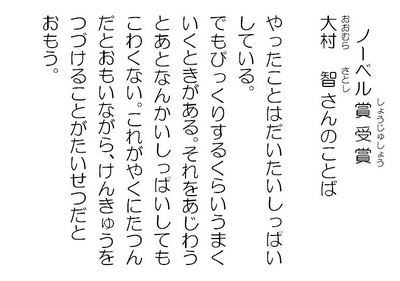 しょうじゅしょう
ノーベル賞 受賞
おおむら さとし
大村 智さんのことば
やったことはだいたいしっぱい
している。
でもびっくりするくらいうまく
いくときがある。それをあじわう
とあとなんかいしっぱいしても
こわくない。これがやくにたつん
だとおもいながら、けんきゅうを
つづけることがたいせつだと
おもう。